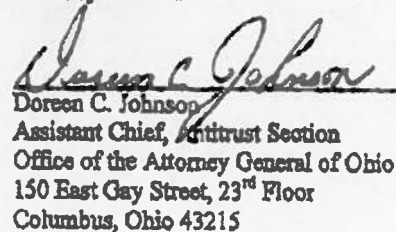 Doreen C. Johnson
Doreen C. Johnson
Assistant Chief, Antitrust Section
Office of the Attorney General of Ohio
150 East Gay Street, 23rd Floor
Columbus, Ohio 43215